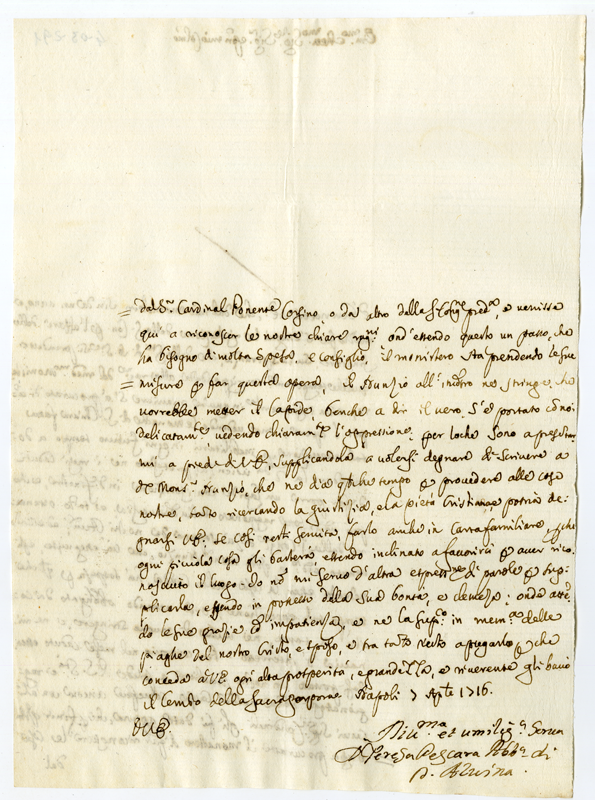 dal Sr. Cardinal Ponente Corsino, o da altro dalla S. Cong. pred.a, e venisse
quì a riconoscer le nostre chiare ragni ond'essendo questo un passo, che
ha bisogno di molta spesa, e consiglio, il monistero sta prendendo le sue
misure p far quest'opera, il Nunzio all'incontro ne stringe, che
vorrebbe metter il Lapide, benche a dir il vero, s'è portato con noi
delicatam.te vedendo chiaram.te l'oppressione, per loche sono a presentar
mi a piedi di V.E. supplicandola a volersi degnare di scrivere a
Monsr. Nunzio, che ne dia qualche tempo p provedere alle cose
nostre, tanto ricercando la giustizia, e la pietà Cristiana, e potrìa de=
gnarsi V.E. se così resti servita, farlo anche in carta familiare, che
ogni picciola cosa gli basterà essendo inclinato a favorirci p aver rico
nosciuto il luogo. Io non mi servo d'altra espressione di parole p sup=
plicarla, essendo in possesso della sua bontà, e clemenza; onda atten
do le sue grazie con impatienza, e ne la supp.co in mem.a delle
piaghe del nostro Cristo, e sposo, e tra tanto resto a pregarlo, che
conceda a V.E. ogni alta prosperità, e grandezza, e riverente gli bacio
il Lembo della Sacra porpora Napoli 7 Ap.le 1716.
D.V.E.
Div.ma et umiliss.a Serva
D. Teresa Pescara Abb.a di
S. Alvina.